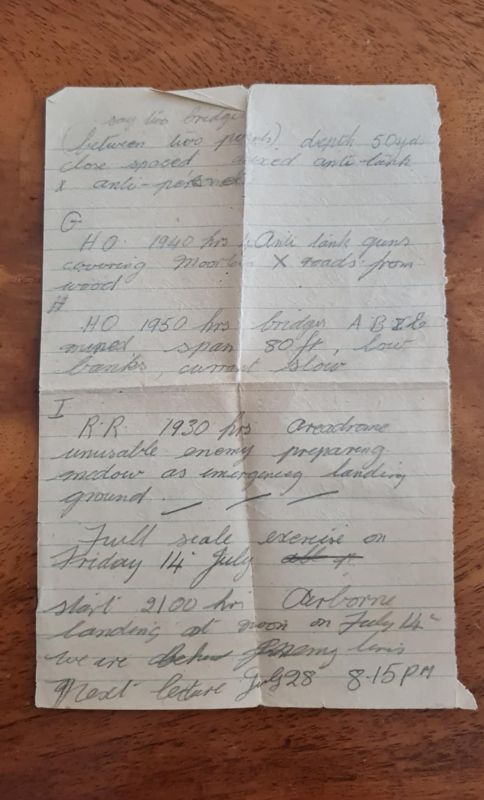 say two bridge
(between two points) depth 50yds
close spaced mixed anti-tank
x anti-personel
G
HO 1940 hrs Anti tank guns
covering X roads from
wood
H
HO 1950 hrs bridges A B & E
span 80 ft, low
banks, current slow
I
R.R. 1930 hrs areadrome
unusable enemy preparing
medow as emergency landing
ground.
Full scale exercise on
Friday 14 July
start 2100 hr Airborne
landing at noon on July 14
we are enemy lines
Next lecture July 28 8-15 PM